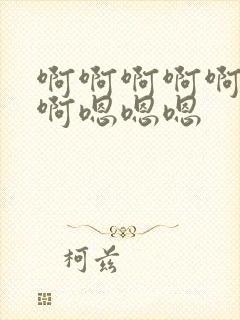 啊啊啊啊啊
啊嗯嗯嗯
柯兹